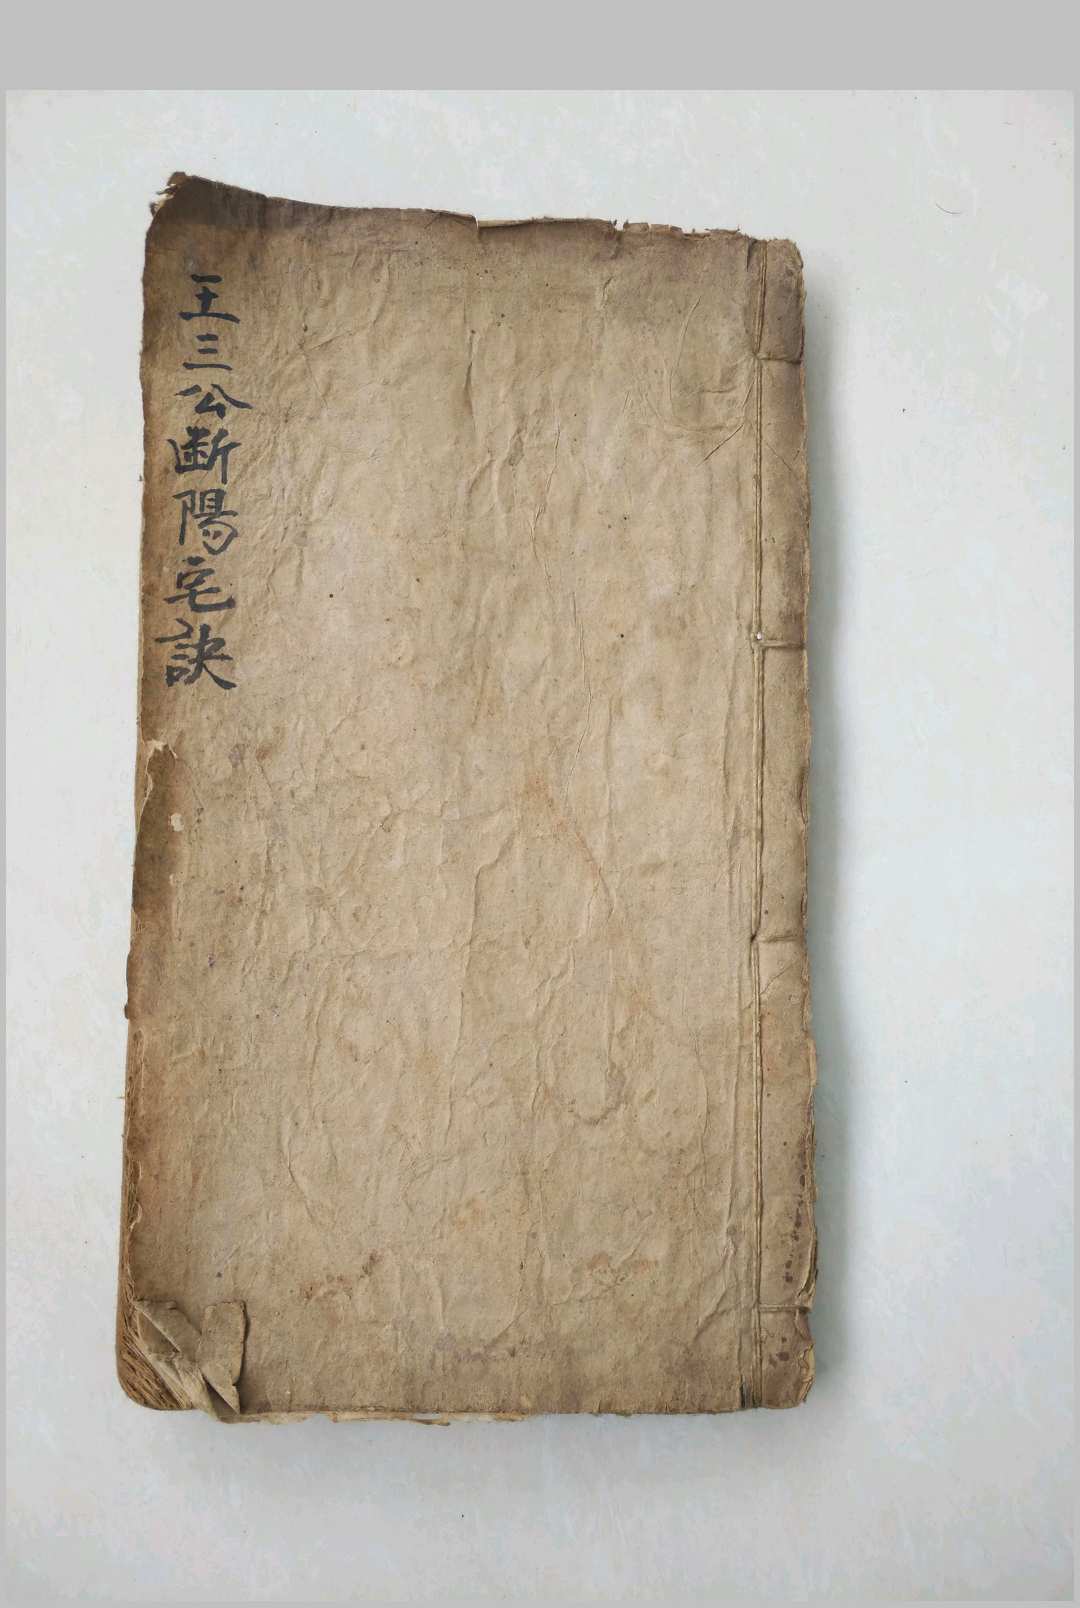 王三公断陽宅訣